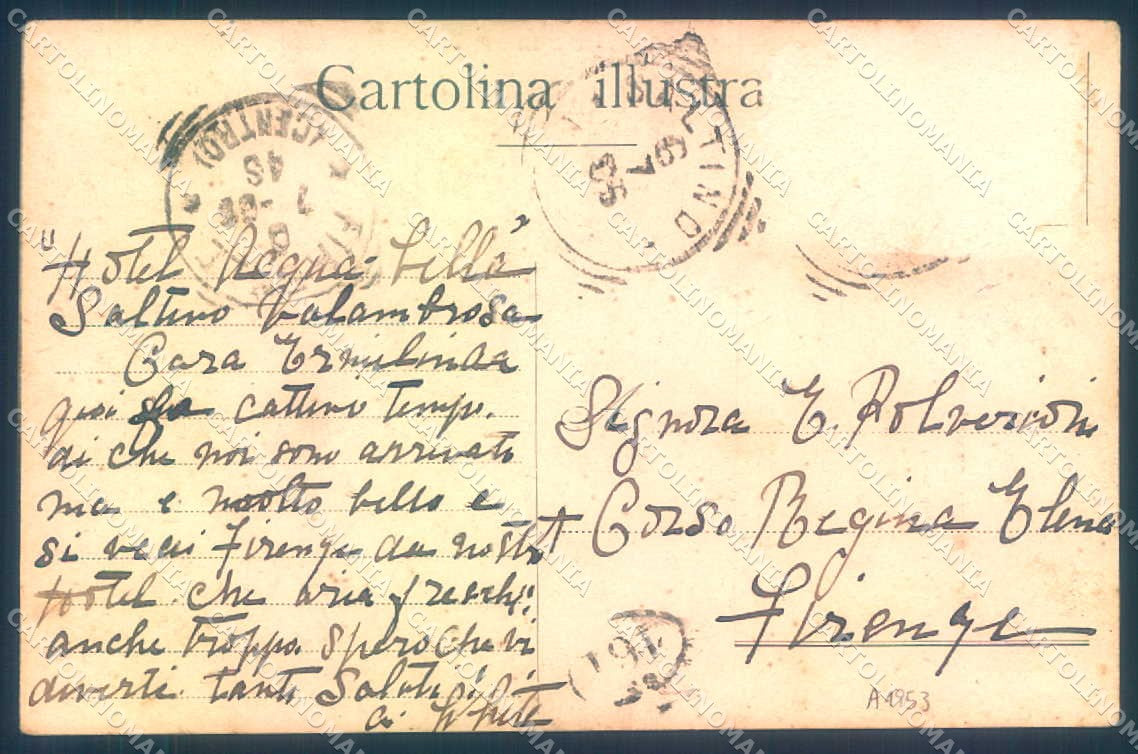 Cartolina illustra
SALTINO
(CENTRO)
"Hotel Acqua-bella"
Saltino Valambrosa
Cara Ermelinda
qui fa cattivo tempo.
di che noi sono arrivati
ma e molto bello e
si vedi Firenze da nostro
Hotel. che aria fresche!
anche troppo. spero che vi
diverti tanti Saluti
White
Signora E. Polverioni
Corso Regina Elena
Firenze
161
A1953
CARTOLINOMANIA